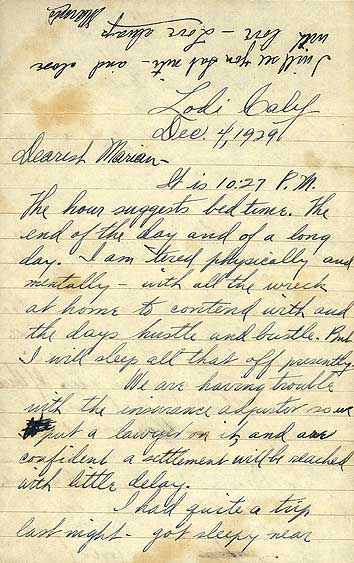 Lodi Calif
Dec. 4, 1929
Dearest Marian -
It is 10:27 P.M.
The hour suggests bed time. The
end of the day and of a long
day. I am tired physically and
mentally - with all the wreck
at home to contend with and
the days hustle and bustle. But
I will sleep all that off presently.
We are having trouble
with the insurance adjustor so we
put a lawyer on it and are
confident a settlement will be reached
with little delay.
I had quite a trip
last night - got sleepy near
I will see you Sat nite - and close
with love - Love always